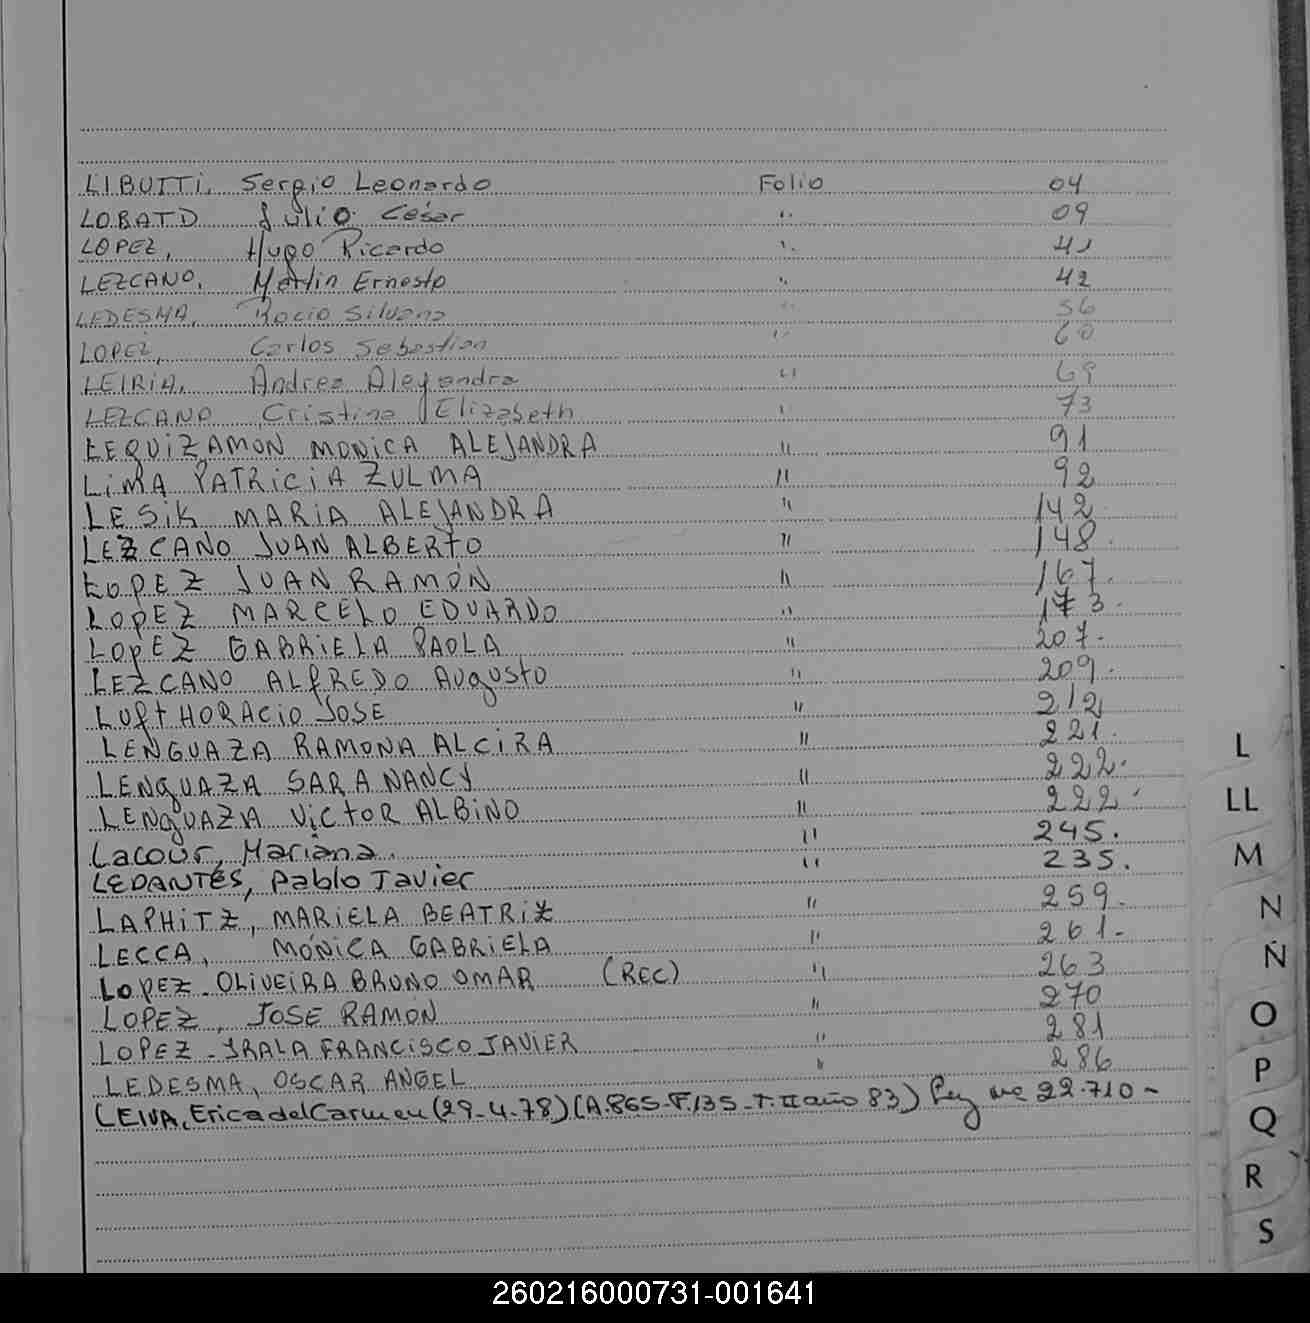 LIBUTTI, Sergio Leonardo Folio 04
LOBATO Julio César " 09
LOPEZ, Hugo Ricardo " 41
LEZCANO, Martin Ernesto " 42
LEDESMA, Rocio Silvana " 56
LOPEZ, Carlos Sebastian " 60
LEIRIA, Andrea Alejandra " 69
LEZCANO Cristina Elizabeth " 73
LEQUIZAMON MONICA ALEJANDRA " 91
LIMA PATRICIA ZULMA " 92
LESIK MARIA ALEJANDRA " 142
LEZCANO JUAN ALBERTO " 148.
LOPEZ JUAN RAMÓN " 167.
LOPEZ MARCELO EDUARDO " 173.
LOPEZ GABRIELA PAOLA " 207.
LEZCANO ALFREDO AUgUSTO " 209.
LUFT HORACIO JOSE " 212
LENGUAZA RAMONA ALCIRA " 221.
LENgUAZA SARA NANCY " 222.
LENgUAZA VICTOR ALBINO " 222.
Lacour, Mariana. " 245.
LEDANTÉS, Pablo Javier " 235.
LAPHITZ, MARIELA BEATRIZ " 259.
LECCA, MÓNICA GABRIELA " 261.-
LOPEZ - OLIVEIRA BRUNO OMAR (REC) " 263
LOPEZ, JOSE RAMÓN " 270
LOPEZ - IRALA FRANCISCO JAVIER " 281
LEDESMA, OSCAR ANGEL " 286
LEIVA, Erica del Carmen (29-4-78) (A.865-F.135-T.II año 83) 22.710-
L
LL
M
N
Ñ
O
P
Q
R
S
260216000731-001641